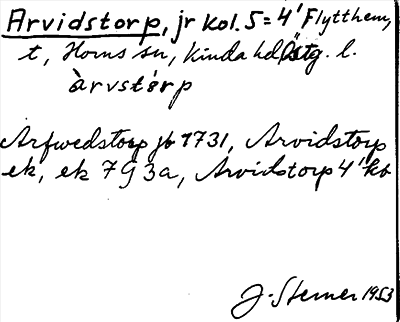 Arvidstorp, jr kol. 5 = 4' Flytthem,
t, Horns sn, Kinda hd Östg. l.
àrvstórp
Arfwedstorp jb 1731, Arvidstorp
ek, ek 7G3a, Arvidstorp 4' kb
J. Sterner 1953